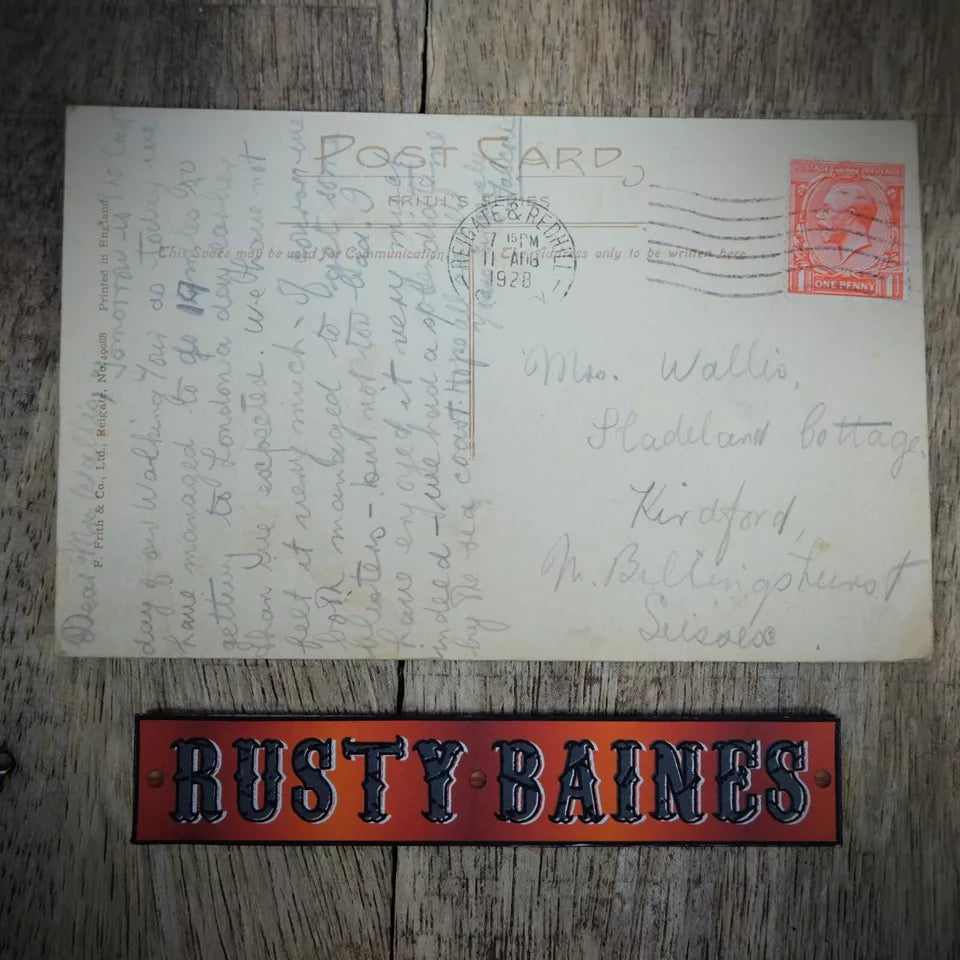 POST CARD
FRITH'S SERIES
This Space may be used for Communication
The Address only to be written here
REIGATE & REDHILL
7 15 PM
11 AUG
1928
POSTAGE REVENUE
1 ONE PENNY 1
F. Frith & Co., Ltd., Reigate, No. 49088 Printed in England
Dear Mrs Wallis,
Tomorrow is the last
day of our Walking Tour as today we
have managed to do 19 miles so
getting to London a day earlier
than we expected. We have not
felt it very much - of course we
both managed to get some
blisters - but not too bad. I
have enjoyed it very much
indeed - we had a spot
by the sea coast. Hope all
Mrs. Wallis,
Sladeland Cottage,
Kirdford,
Nr. Billingshurst
Sussex
RUSTY BAINES